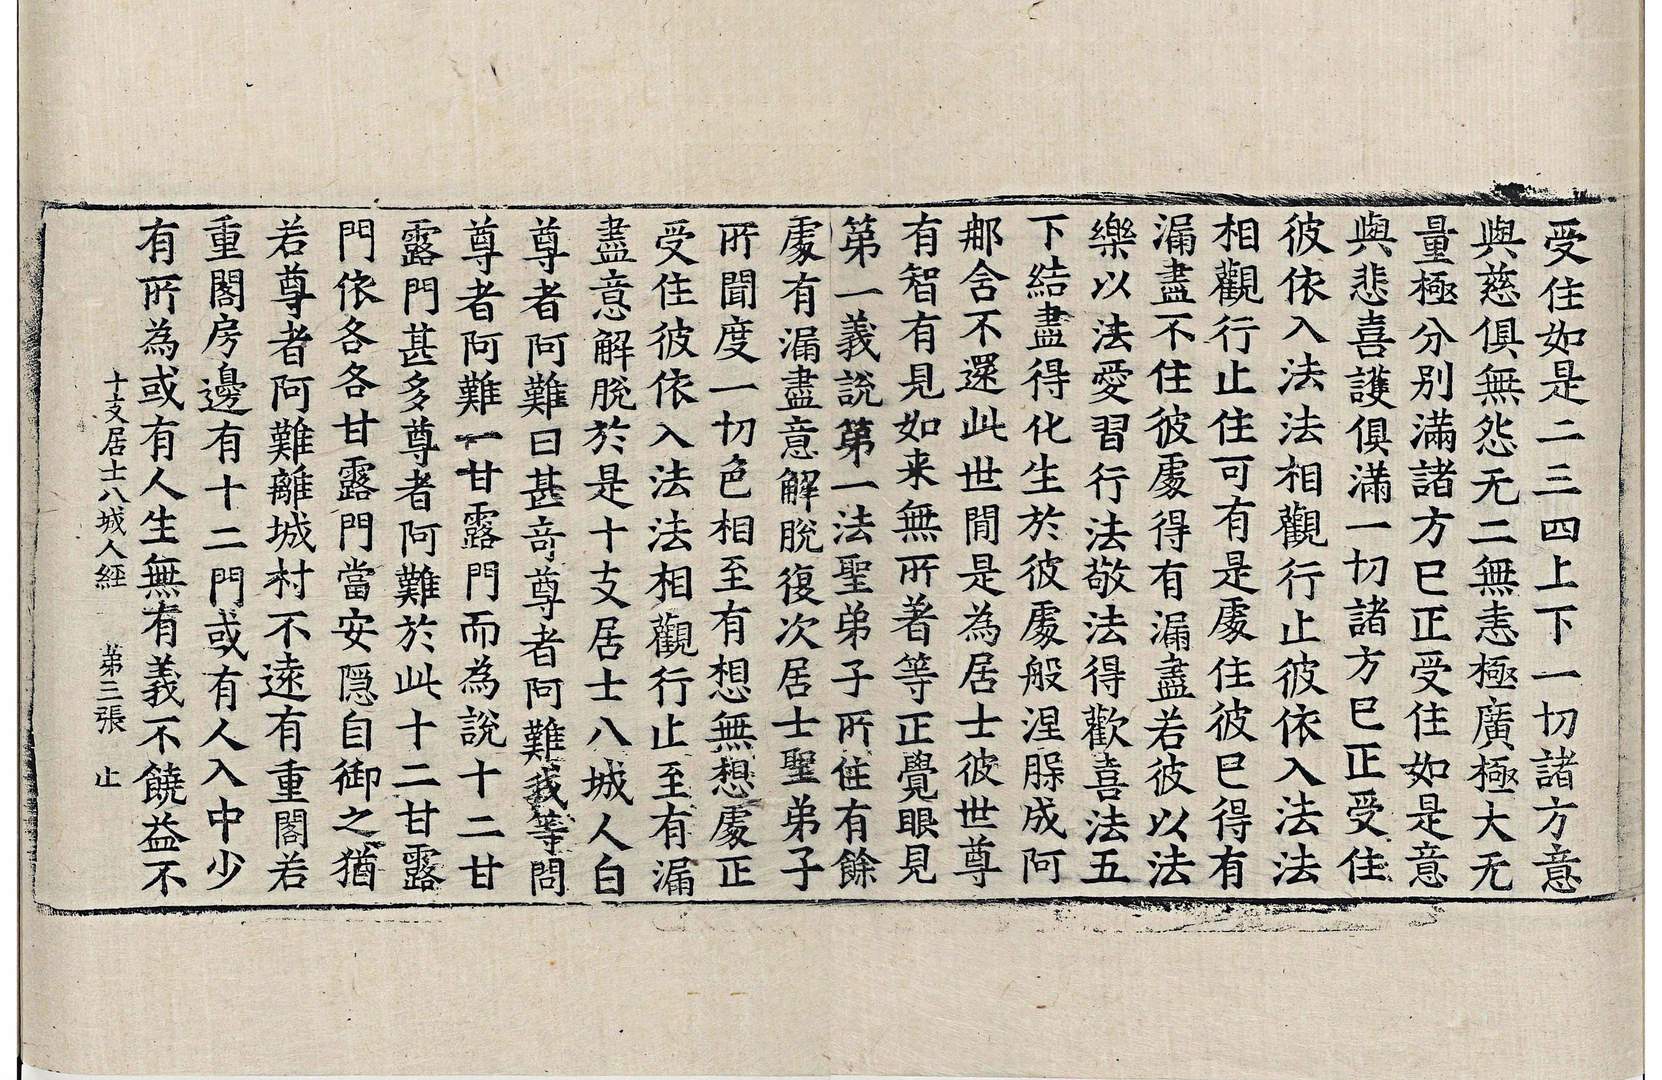 受住如是二三四上下一切諸方意
與慈俱無怨无二無恚極廣極大无
量極分別滿諸方已正受住如是意
與悲喜護俱滿一切諸方已正受住
彼依入法法相觀行止彼依入法法
相觀行止住可有是處住彼已得有
漏盡不住彼處得有漏盡若彼以法
樂以法愛習行法敬法得歡喜法五
下結盡得化生於彼處般涅槃成阿
那舍不還此世間是為居士彼世尊
有智有見如来無所著等正覺眼見
第一義說第一法聖弟子所住有餘
處有漏盡意解脫復次居士聖弟子
所聞度一切色相至有想無想處正
受住彼依入法法相觀行止至有漏
盡意解脫於是十支居士八城人白
尊者阿難曰甚奇尊者阿難我等問
尊者阿難一甘露門而為說十二甘
露門甚多尊者阿難於此十二甘露
門依各各甘露門當安隱自御之猶
若尊者阿難離城村不遠有重閣若
重閣房邊有十二門或有人入中少
有所為或有人生無有義不饒益不
十支居士八城人經 第三張 止